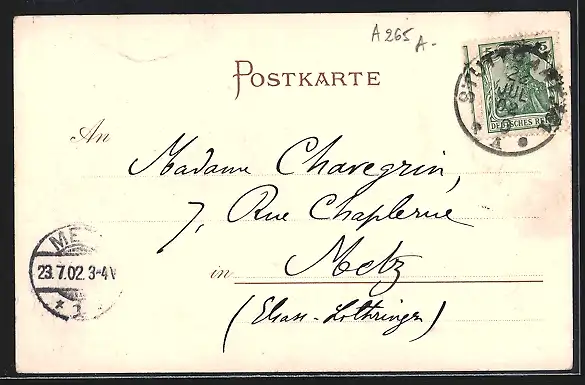 A 265 A.-
POSTKARTE
STUTTGART
22 JUL 02
5
DEUTSCHES REICH
An
Madame Chavegrin,
7, Rue Chaplerue
in Metz
(Elsass-Lothringen)
METZ
23.7.02.3-4V
* 1